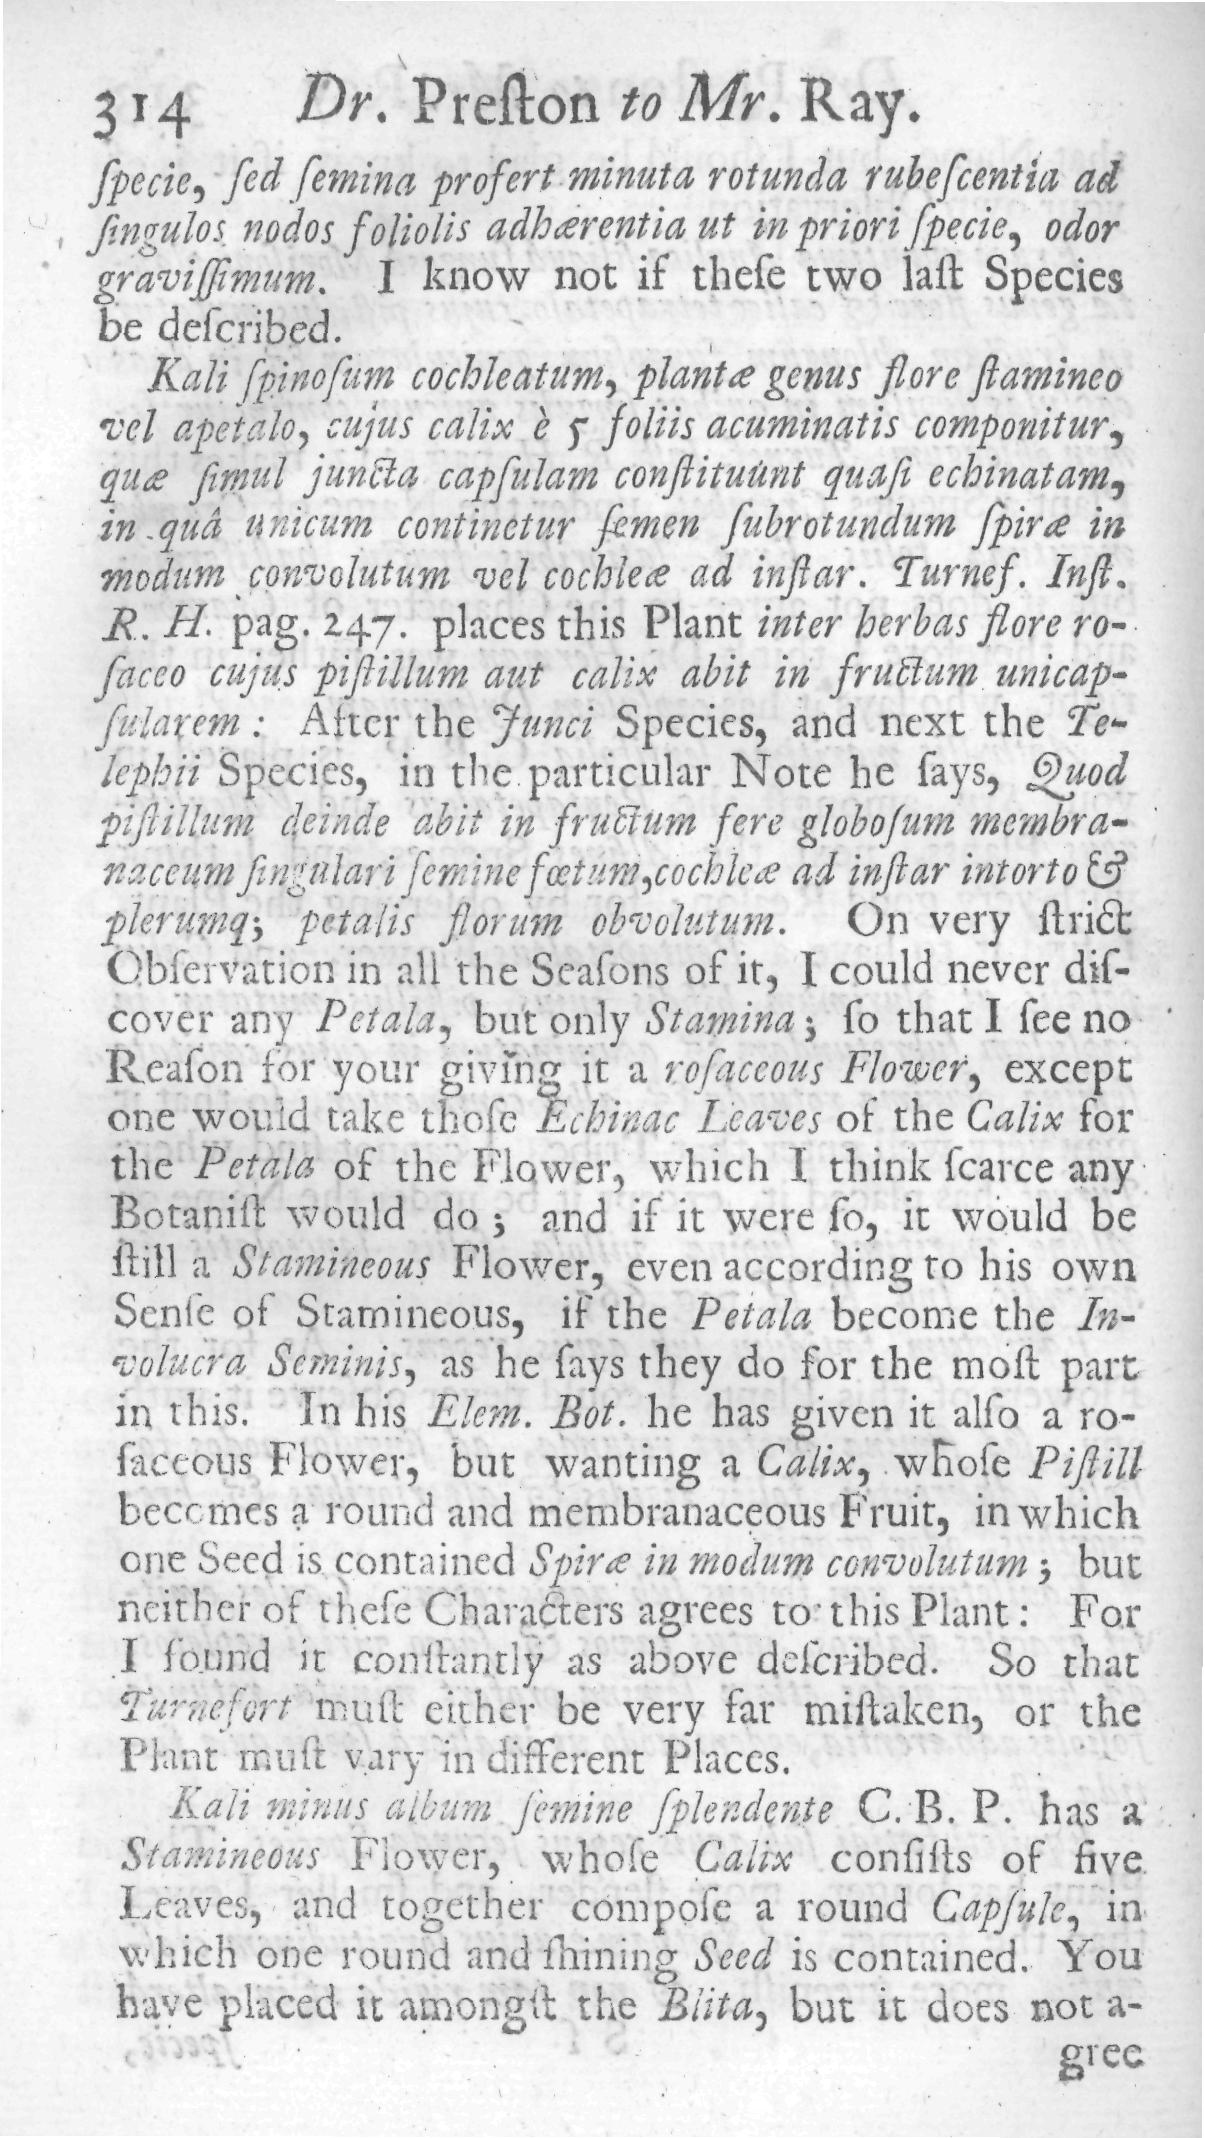 314 Dr. Preſton to Mr. Ray.
ſpecie, ſed ſemina profert minuta rotunda rubeſcentia ad
ſingulos nodos foliolis adhærentia ut in priori ſpecie, odor
graviſſimum. I know not if theſe two laſt Species
be deſcribed.
Kali ſpinoſum cochleatum, plantæ genus flore ſtamineo
vel apetalo, cujus calix è 5 foliis acuminatis componitur,
quæ ſimul juncta capſulam conſtituunt quaſi echinatam,
in quâ unicum continetur ſemen ſubrotundum ſpiræ in
modum convolutum vel cochleæ ad inſtar. Turnef. Inſt.
R. H. pag. 247. places this Plant inter herbas flore ro-
ſaceo cujus piſtillum aut calix abit in fructum unicap-
ſularem : After the Junci Species, and next the Te-
lephii Species, in the particular Note he ſays, Quod
piſtillum deinde abit in fructum fere globoſum membra-
naceum ſingulari ſemine fœtum, cochleæ ad inſtar intorto &
plerumq; petalis florum obvolutum. On very ſtrict
Obſervation in all the Seaſons of it, I could never diſ-
cover any Petala, but only Stamina ; ſo that I ſee no
Reaſon for your giving it a roſaceous Flower, except
one would take thoſe Echinac Leaves of the Calix for
the Petala of the Flower, which I think ſcarce any
Botaniſt would do ; and if it were ſo, it would be
ſtill a Stamineous Flower, even according to his own
Senſe of Stamineous, if the Petala become the In-
volucra Seminis, as he ſays they do for the moſt part
in this. In his Elem. Bot. he has given it alſo a ro-
ſaceous Flower, but wanting a Calix, whoſe Piſtill
becomes a round and membranaceous Fruit, in which
one Seed is contained Spiræ in modum convolutum ; but
neither of theſe Characters agrees to this Plant : For
I found it conſtantly as above deſcribed. So that
Turnefort muſt either be very far miſtaken, or the
Plant muſt vary in different Places.
Kali minus album ſemine ſplendente C. B. P. has a
Stamineous Flower, whoſe Calix conſiſts of five
Leaves, and together compoſe a round Capſule, in
which one round and ſhining Seed is contained. You
have placed it amongſt the Blita, but it does not a-
gree